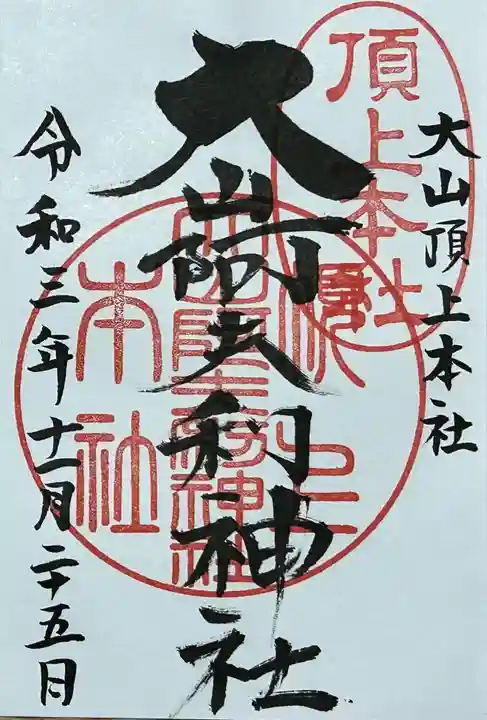 大山頂上本社
頂上本社
大山阿夫利神社
本社
令和三年十一月二十五日